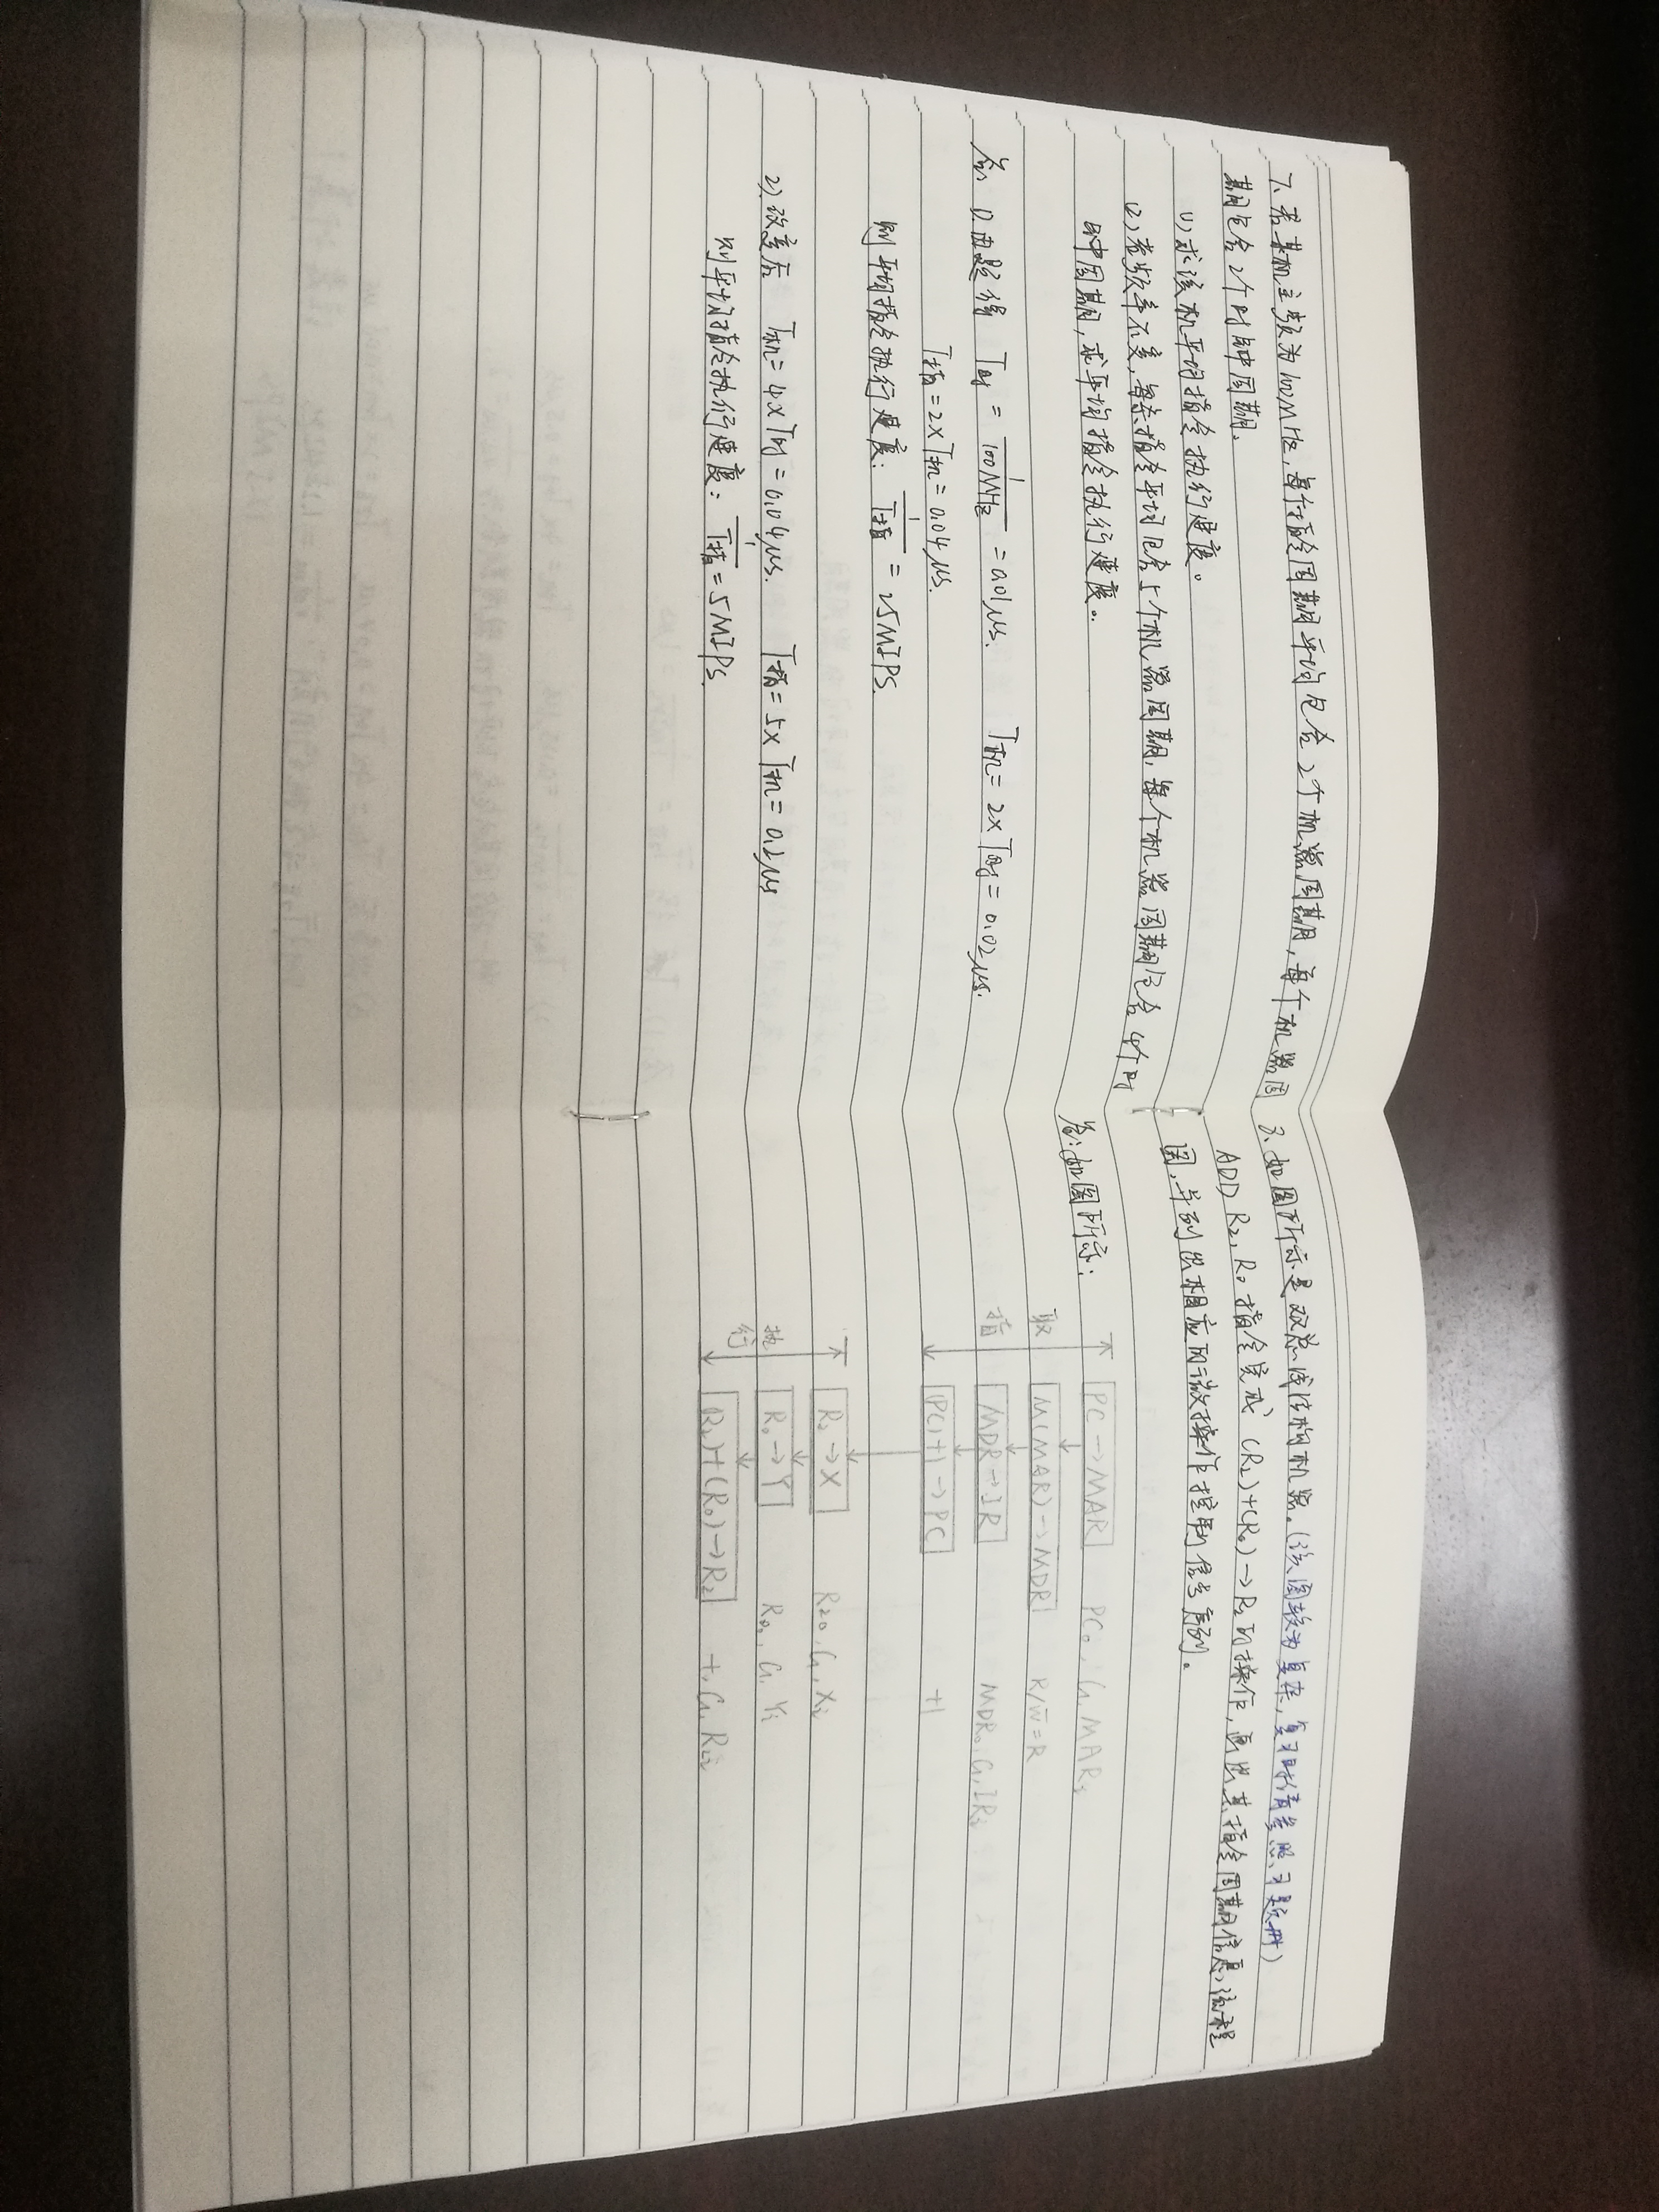 7、若某机主频为100MHz,每个指令周期平均包含2个机器周期,每个机器周
期包含2个时钟周期.
(1)求该机平均指令执行速度。
(2)若频率不变,每条指令平均包含5个机器周期,每个机器周期包含4个时
钟周期,求平均指令执行速度。
答: 1)由题得 T时 = 1/100MHz = 0.01μs. T机 = 2×T时 = 0.02μs.
T指 = 2×T机 = 0.04μs.
则平均指令执行速度: 1/T指 = 25MIPS.
2)改变后 T机 = 4×T时 = 0.04μs. T指 = 5×T机 = 0.2μs
则平均指令执行速度: 1/T指 = 5MIPS.
3、如图所示是双总线结构机器。(该图较为复杂,复习时请参照习题册)
ADD R2,R0指令完成 (R2)+(R0)→R2的操作,画出其指令周期信息流程
图,并列出相应的微操作控制信号序列。
答:如图所示:
取指
PC→MAR PCo,G,MARi
M(MAR)→MDR R/W̅=R
MDR→IR MDRo,G,IRi
(PC)+1→PC +1
执行
R2→X R2o,G,Xi
R0→Y R0o,G,Yi
(R2)+(R0)→R2 +,G,R2i